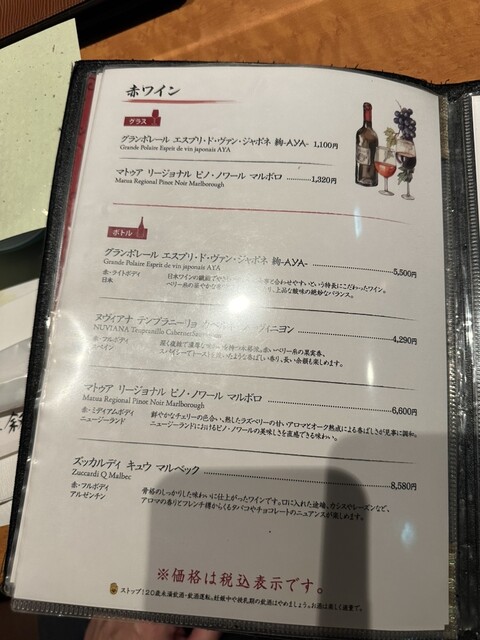 赤ワイン
グラス
グランポレール エスプリ・ド・ヴァン・ジャポネ 絢-AYA- 1,100円
Grande Polaire Esprit de vin japonais AYA
マトゥア リージョナル ピノ・ノワール マルボロ ............1,320円
Matua Regional Pinot Noir Marlborough
ボトル
グランポレール エスプリ・ド・ヴァン・ジャポネ 絢-AYA-
Grande Polaire Esprit de vin japonais AYA
5,500円
赤・ライトボディ
日本
日本ワインの繊細 と合わせやすいという特長にこだわったワイン。
ベリー系の 、上品な酸味の絶妙なバランス。
ヌヴィアナ テンプラニーリョ ヴィニヨン
NUVIANA Tempranillo Cabernet
4,290円
赤・フルボディ
スペイン
赤いベリー系の果実香。
スパイシーでトースト したような香ばしい香り、長い余韻も楽しめます。
マトゥア リージョナル ピノ・ノワール マルボロ
Matua Regional Pinot Noir Marlborough
6,600円
赤・ミディアムボディ
ニュージーランド
鮮やかなチェリーの色合い、熟したラズベリーの甘いアロマとオーク熟成による香ばしさが見事に調和。
ニュージーランドにおけるピノ・ノワールの美味しさを直感できる味わい。
ズッカルディ キュウ マルベック
Zuccardi Q Malbec
8,580円
赤・フルボディ
アルゼンチン
骨格のしっかりした味わいに仕上がったワインです。口に入れた途端、カシスやレーズンなど、
アロマの香りとフレンチ樽からくるタバコやチョコレートのニュアンスが楽しめます。
※価格は税込表示です。
ストップ!20歳未満飲酒・飲酒運転。妊娠中や授乳期の飲酒はやめましょう。お酒は楽しく適量で。